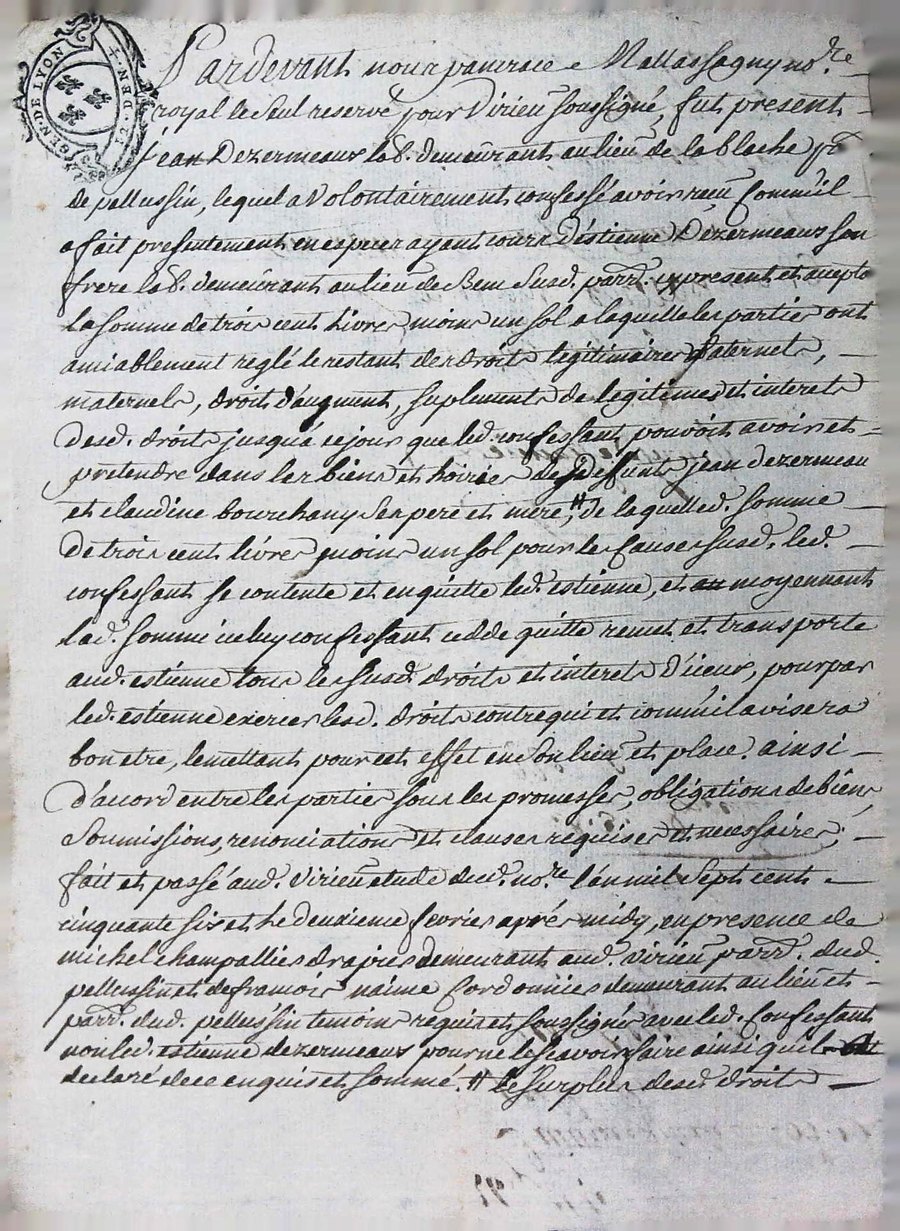 GEN. DE LYON
Pardevant nous pancrace Mallassagny no.re
royal le seul reservé pour Virieu soussigné, fut present
jean Dezermeaux lab. demeurant au lieu de la blache p.se
de pellussin, lequel a Volontairement confessé avoir reçu Comm'il
a fait presentement en especes ayant cours d'estienne Dezermeaux son
frere lab. demeurant au lieu de Bem susd. parr. cy present et accepte
la somme de trois cent Livres moins un sol a laquelle les parties ont
amiablement reglé le restant des droits legitimaires paternels,
maternels, droit d'augment, suplements de legitime et interets
desd. droits jusqu'a ce jour que led. confessant pouvoit avoir et
pretendre dans les biens et hoiries des defunts jean dezermeau
et claudine bourchany ses pere et mere, # de laquelle d. somme
de trois cent livres moins un sol pour les Causes susd. led.
confessant se contente et en quitte led. estienne, et moyennant
lad. somme iceluy confessant cedde quitte remet et transporte
aud. estienne tous les susd. droits et interets d'iceux, pour par
led. estienne exercer lesd. droits contre qui et comm'il avisera
bon etre, le mettant pour cet effet en son lieu et place. ainsi
d'accord entre les parties sous les promesses, obligations de biens,
soumissions, renonciations et clauses requises et necessaires,
fait et passé aud. Virieu etude dud. no.re l'an mil sept cent
cinquante six et le deuxieme fevrier aprés midy, en presence de
michel champallier drapier demeurant aud. virieu parr. dud.
pellussin et de francois naime Cordonnier demeurant au lieu et
parr. dud. pellussin temoins requis et soussignés avec led. Confessant
non led. estienne dezermeaux pour ne le scavoir faire ainsi qu'il
declaré de ce enquis et sommé. # le surplus desd. droits